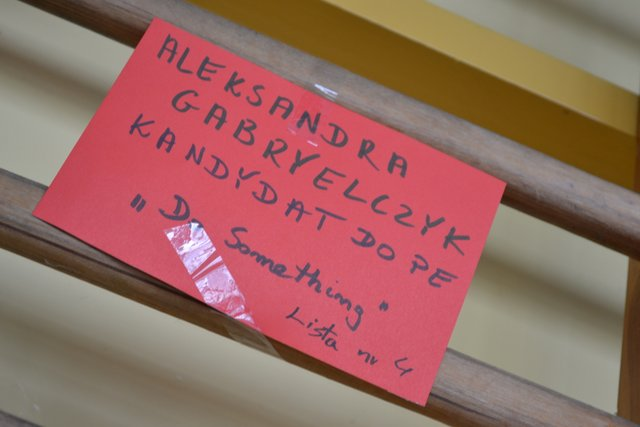 ALEKSANDRA
GABRYELCZYK
KANDYDAT DO PE
"Do Something"
Lista nr 4